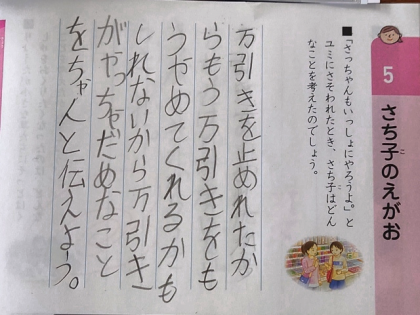 5 さち子のえがお
■「さっちゃんもいっしょにやろうよ。」と
ユミにさそわれたとき、さち子はどん
なことを考えたのでしょう。
万引きを止めれたか
らもう万引きをも
うやめてくれるかも
しれないから万引き
がやっちゃだめなこと
をちゃんと伝えよう。